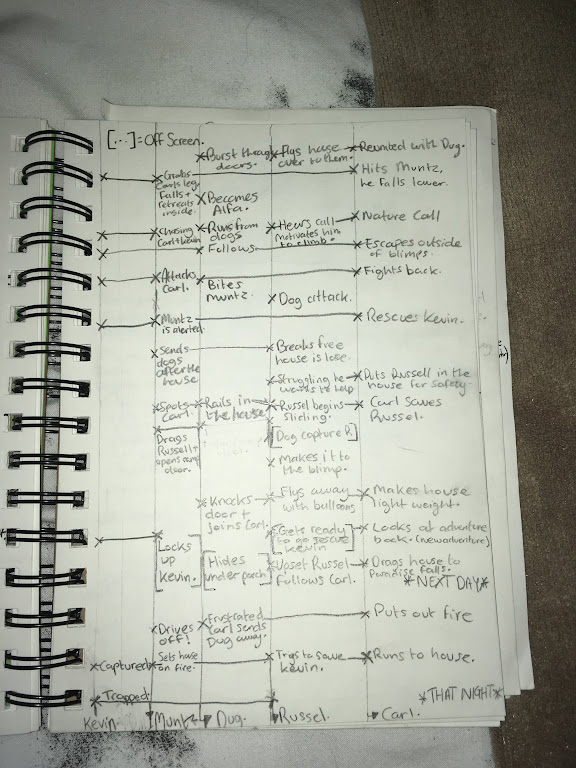 [...]=Off Screen.
Burst through doors.
Flys house over to them.
Reunited with Dug.
Grabs Carls leg. Falls + retreats inside.
Hits Muntz, he falls lower.
Becomes Alfa.
Chasing
Runs from dogs
Hears call motivates him to climb.
Nature Call
Follows.
Escapes outside of blimps.
Attacks Carl.
Bites muntz.
Fights back.
Dog attack.
Muntz is alerted
Rescues Kevin.
Sends dogs after the house
Breaks free house is lose.
Struggling he wants to help
Puts Russell in the house for safety
Spots Carl.
Rails in the house
Russel begins sliding.
Carl Saves Russel.
Drags Russell + opens door.
[Dog capture R]
Makes it to the blimp.
Knocks door + joins Carl.
Flys away with balloons
Makes house light weight.
[Gets ready to go rescue Kevin]
Looks at adventure book. (new adventure)
[Locks up Kevin.
Hides under porch]
Upset Russel follows Carl.
Drags house to Paradise falls.
*NEXT DAY*
Drives off!
Frustrated Carl sends Dug away.
Puts out fire
Captured
Sets house on fire.
Trys to save Kevin.
Runs to house.
Trapped
*THAT NIGHT*
Kevin.
Muntz
Dug.
Russel.
Carl.